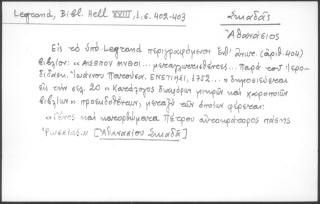 Legrand, Bibl. Hell XVIII, 1, σ. 402-403
Σκιαδᾶς
Ἀθανάσιος
Εἰς τὸ ὑπὸ Legrand περιγραφόμενον ἐνθ' ἀνωτ. (ἀριθ. 404)
βιβλίον: «ΑΙΣΩΠΟΥ ΜΥΘΟΙ... μεταγλωττισθέντες... παρὰ τοῦ Ἱερο-
διδασκ. Ἰωάννου Πατούσα. ΕΝΕΤΙΗΣΙ, 1752...» δημοσιεύεται
εἰς τὴν σελ. 20 «Κατάλογος διαφόρων μικρῶν καὶ χαροποιῶν
βιβλίων» προεκδοθέντων, μεταξὺ τῶν ὁποίων φέρεται:
«Γένος καὶ κατορθώματα Πέτρου αὐτοκράτορος πάσης
Ῥωσσίας» [Ἀθανασίου Σκιαδᾶ]